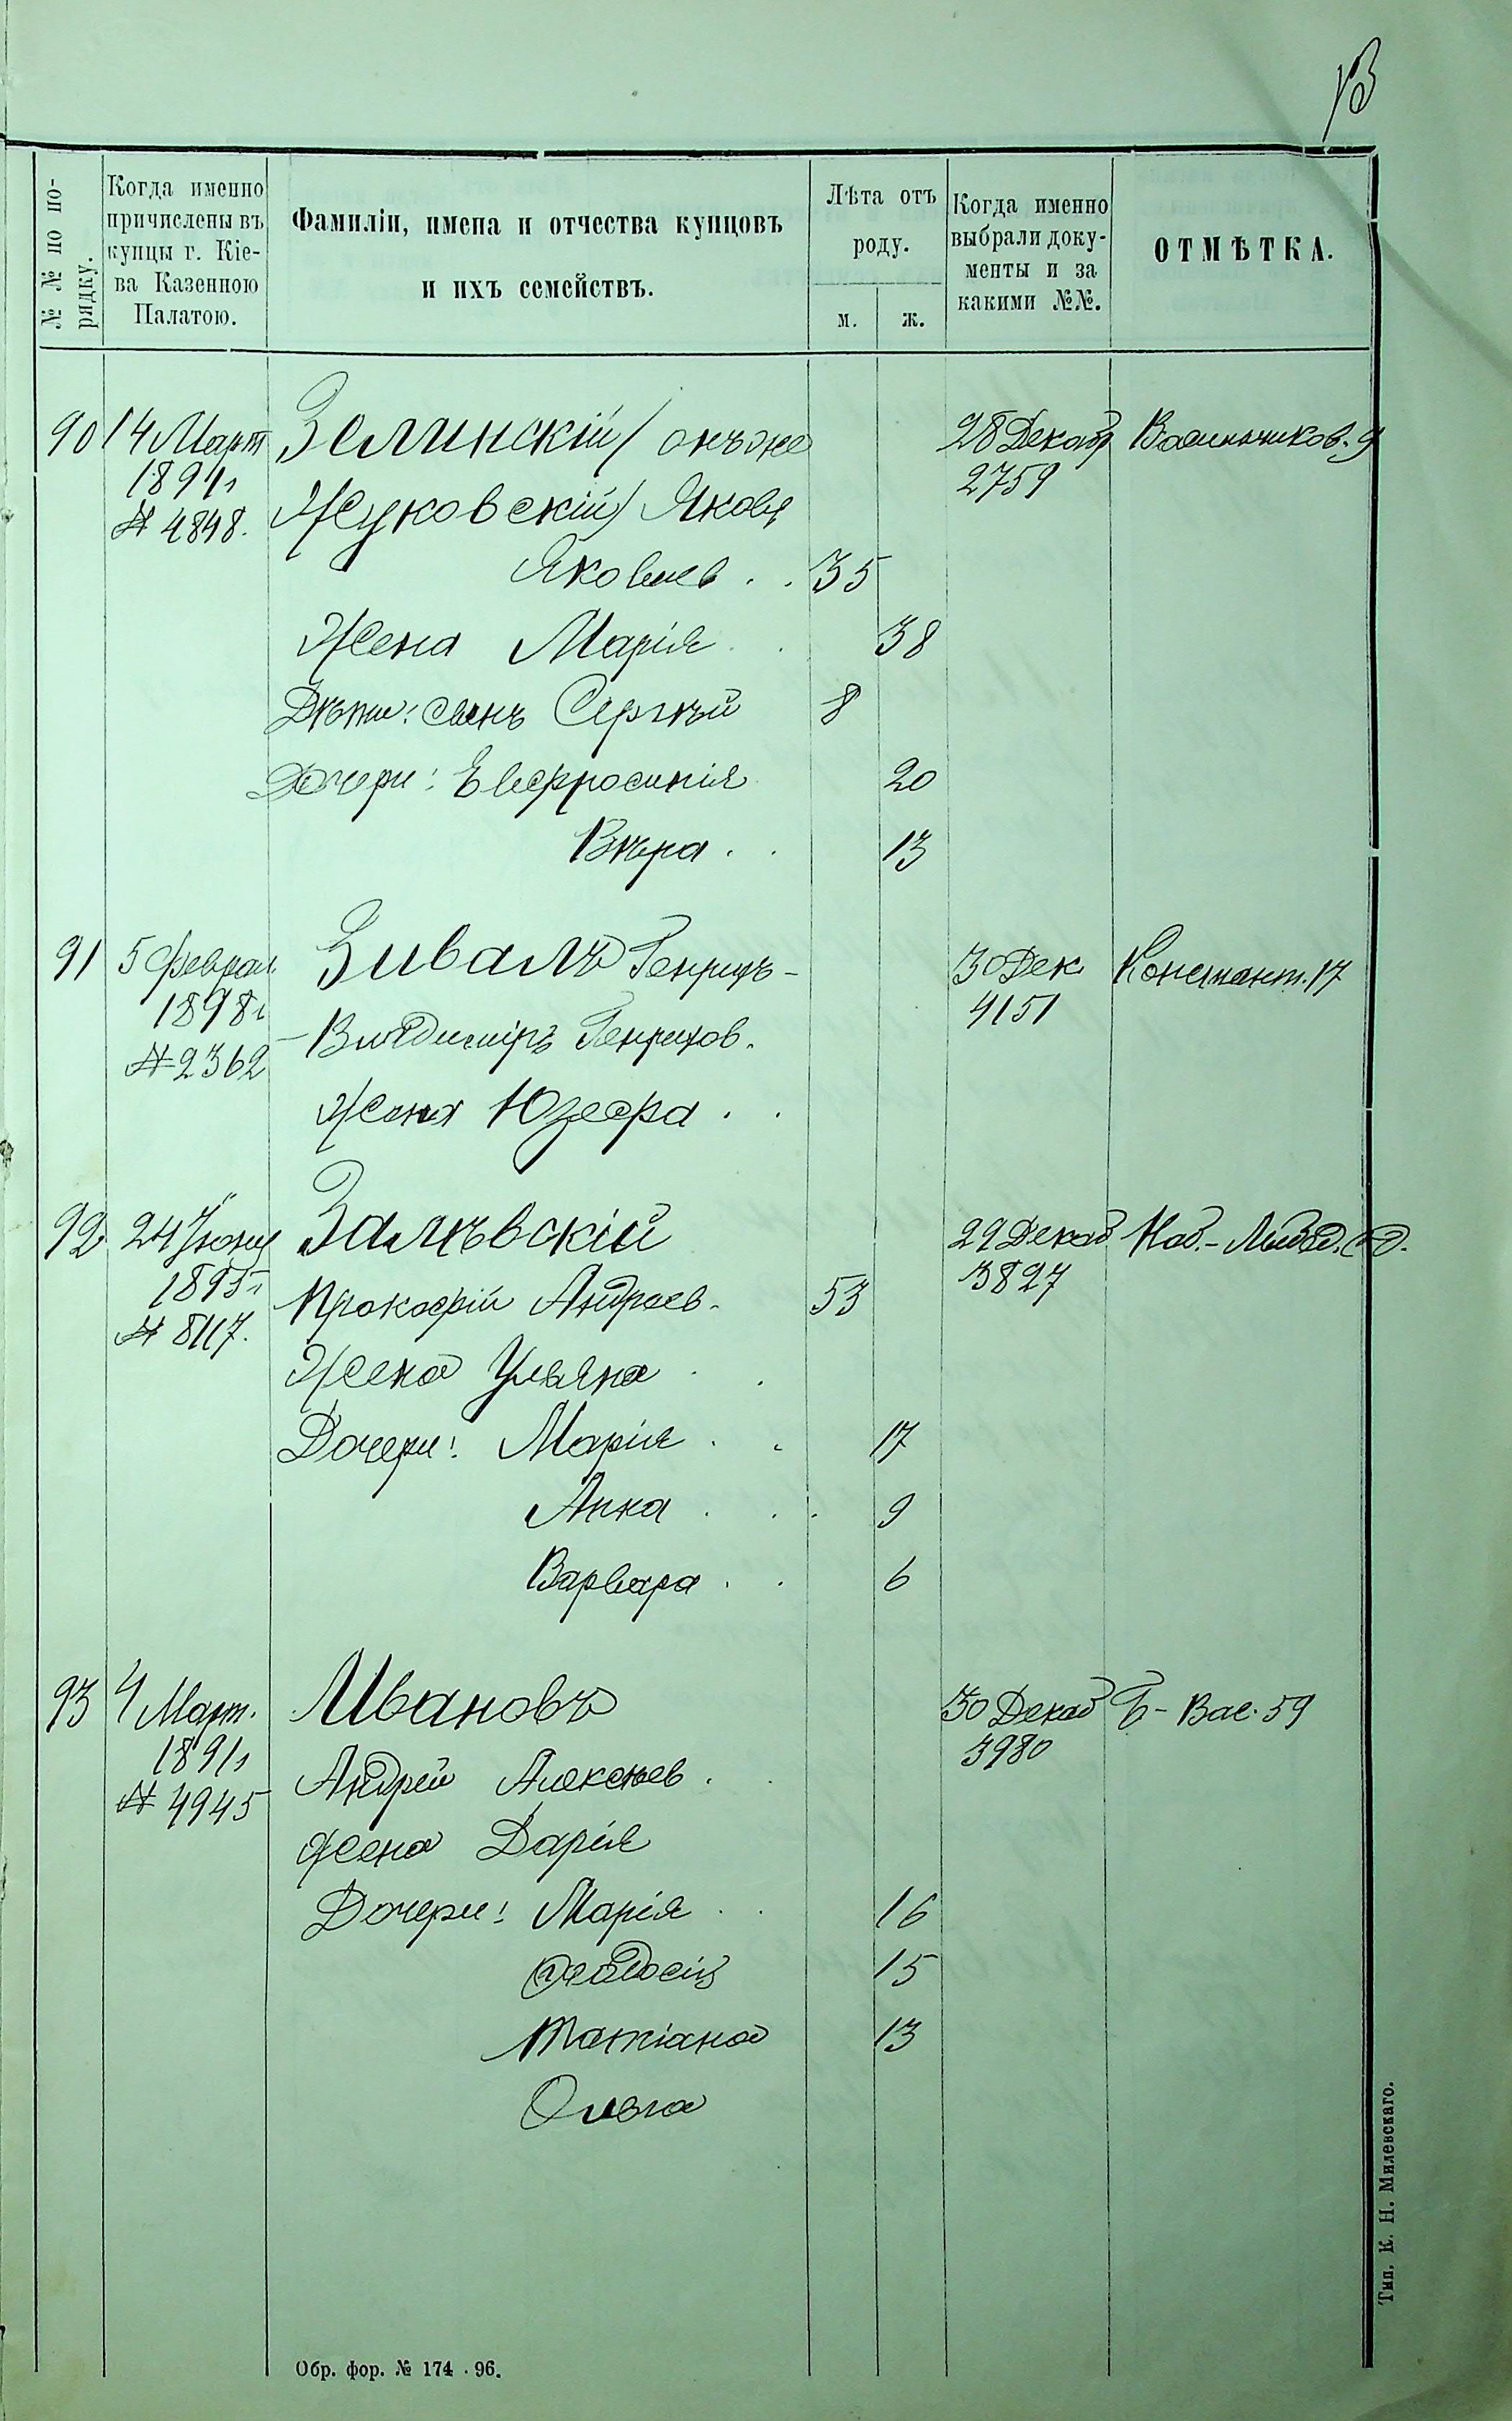 13
№ № по по-
рядку.
Когда именно
причислены въ
купцы г. Кіе-
ва Казенною
Палатою.
Фамиліи, имена и отчества купцовъ
и ихъ семействъ.
Лѣта отъ
роду.
м. ж.
Когда именно
выбрали доку-
менты и за
какими №№.
ОТМѢТКА.
90 14 Март Зелинскій / онъ же 28 Декабр
1891 г Жуковскій / Яковъ 2759
№ 4848. Яковлев . . 35
Жена Марія . . 38
Дѣти: сынъ Сергѣй 8
Дочери: Евфросинія 20
Вѣра . . 13
91 5 Феврал Зивалъ Генрихъ- 30 Дек Констант. 17
1898 г Владиміръ Генрихов. 4151
№ 2362
Жена Юзефа . .
92 24 Іюня Залѣвскій 29 Декаб Наб.-
1895 г Прокофій Андреев. 53 3827
№ 8117.
Жена Ульяна . .
Дочери: Марія . . 17
Анна . . . 9
Варвара . . 6
93 4 Март. Ивановъ 30 Декаб Б-Вас. 59
1891 г Андрей Алексѣев . . 3980
№ 4945
Жена Дарія
Дочери: Марія . . 16
Феодосія 15
Татіана 13
Ольга
Обр. фор. № 174 - 96.
Тип. К. Н. Милевскаго.